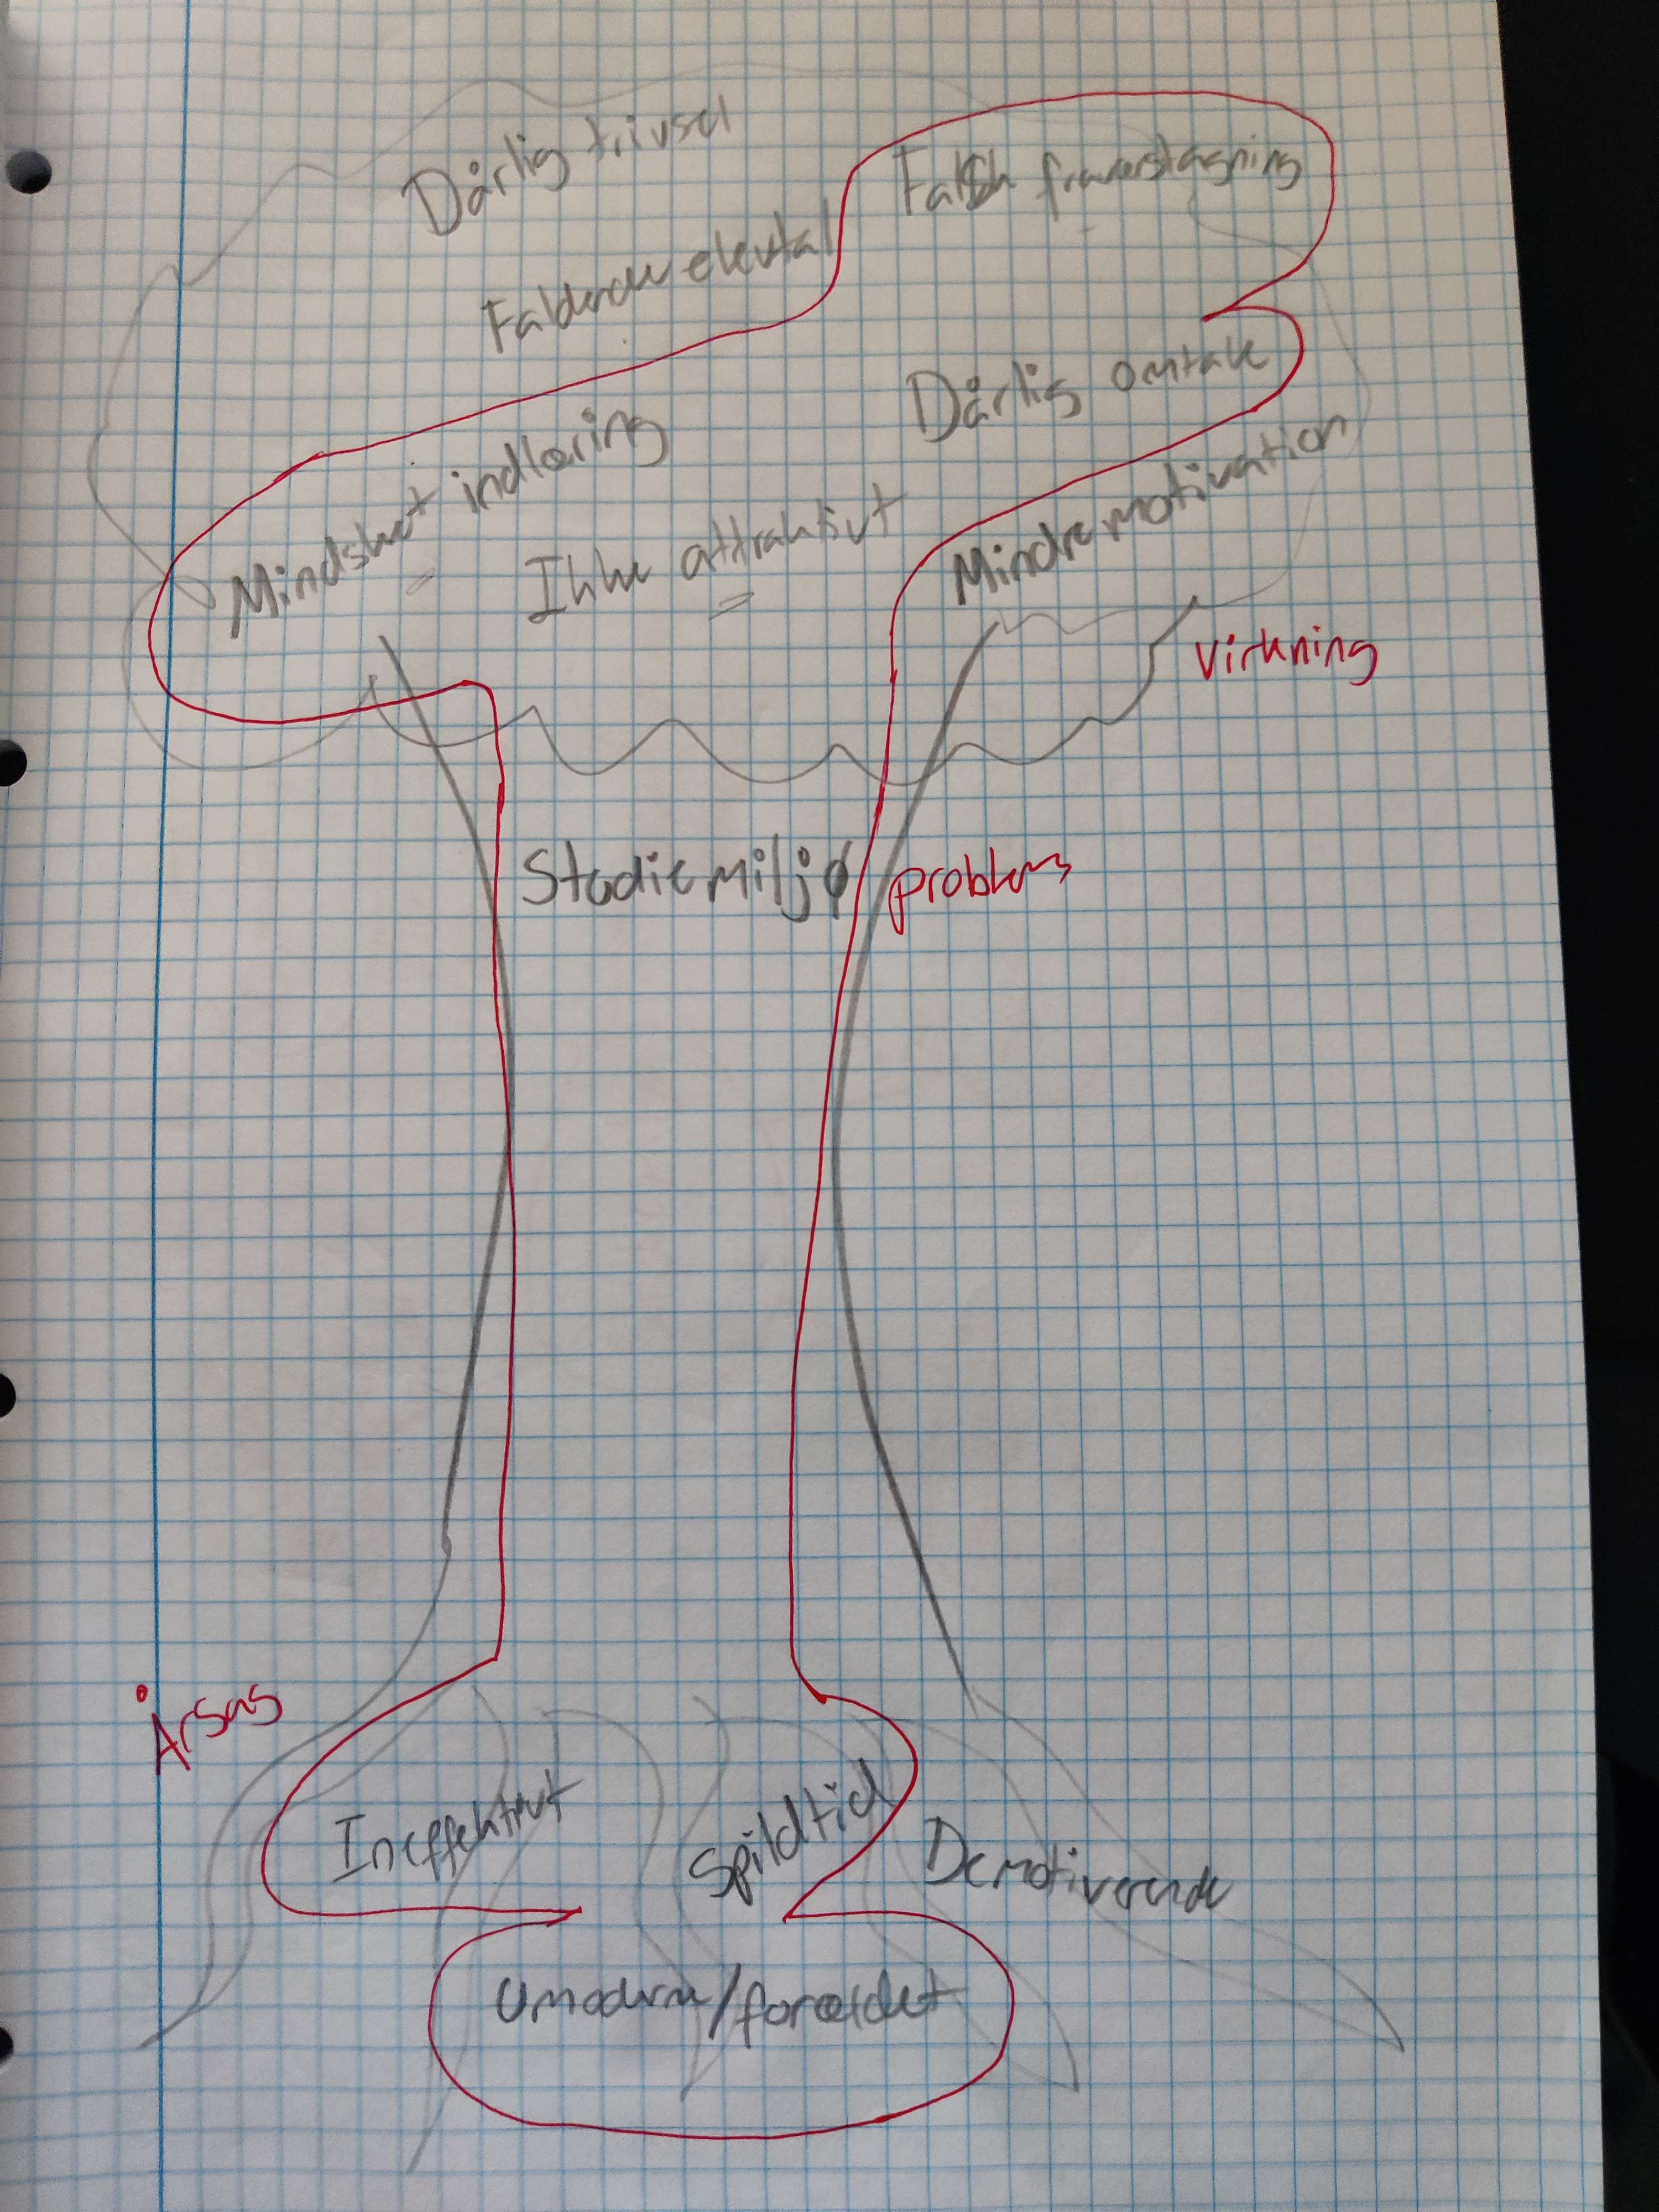 Dårlig trivsel
Falsk fraværstagning
Faldende elevtal
Dårlig omtale
Mindsket indlæring
Ikke attraktivt
Mindre motivation
Virkning
Studiemiljø
problem
Årsag
Ineffektivt
Spildtid
Demotiverende
Umoderne/forældet